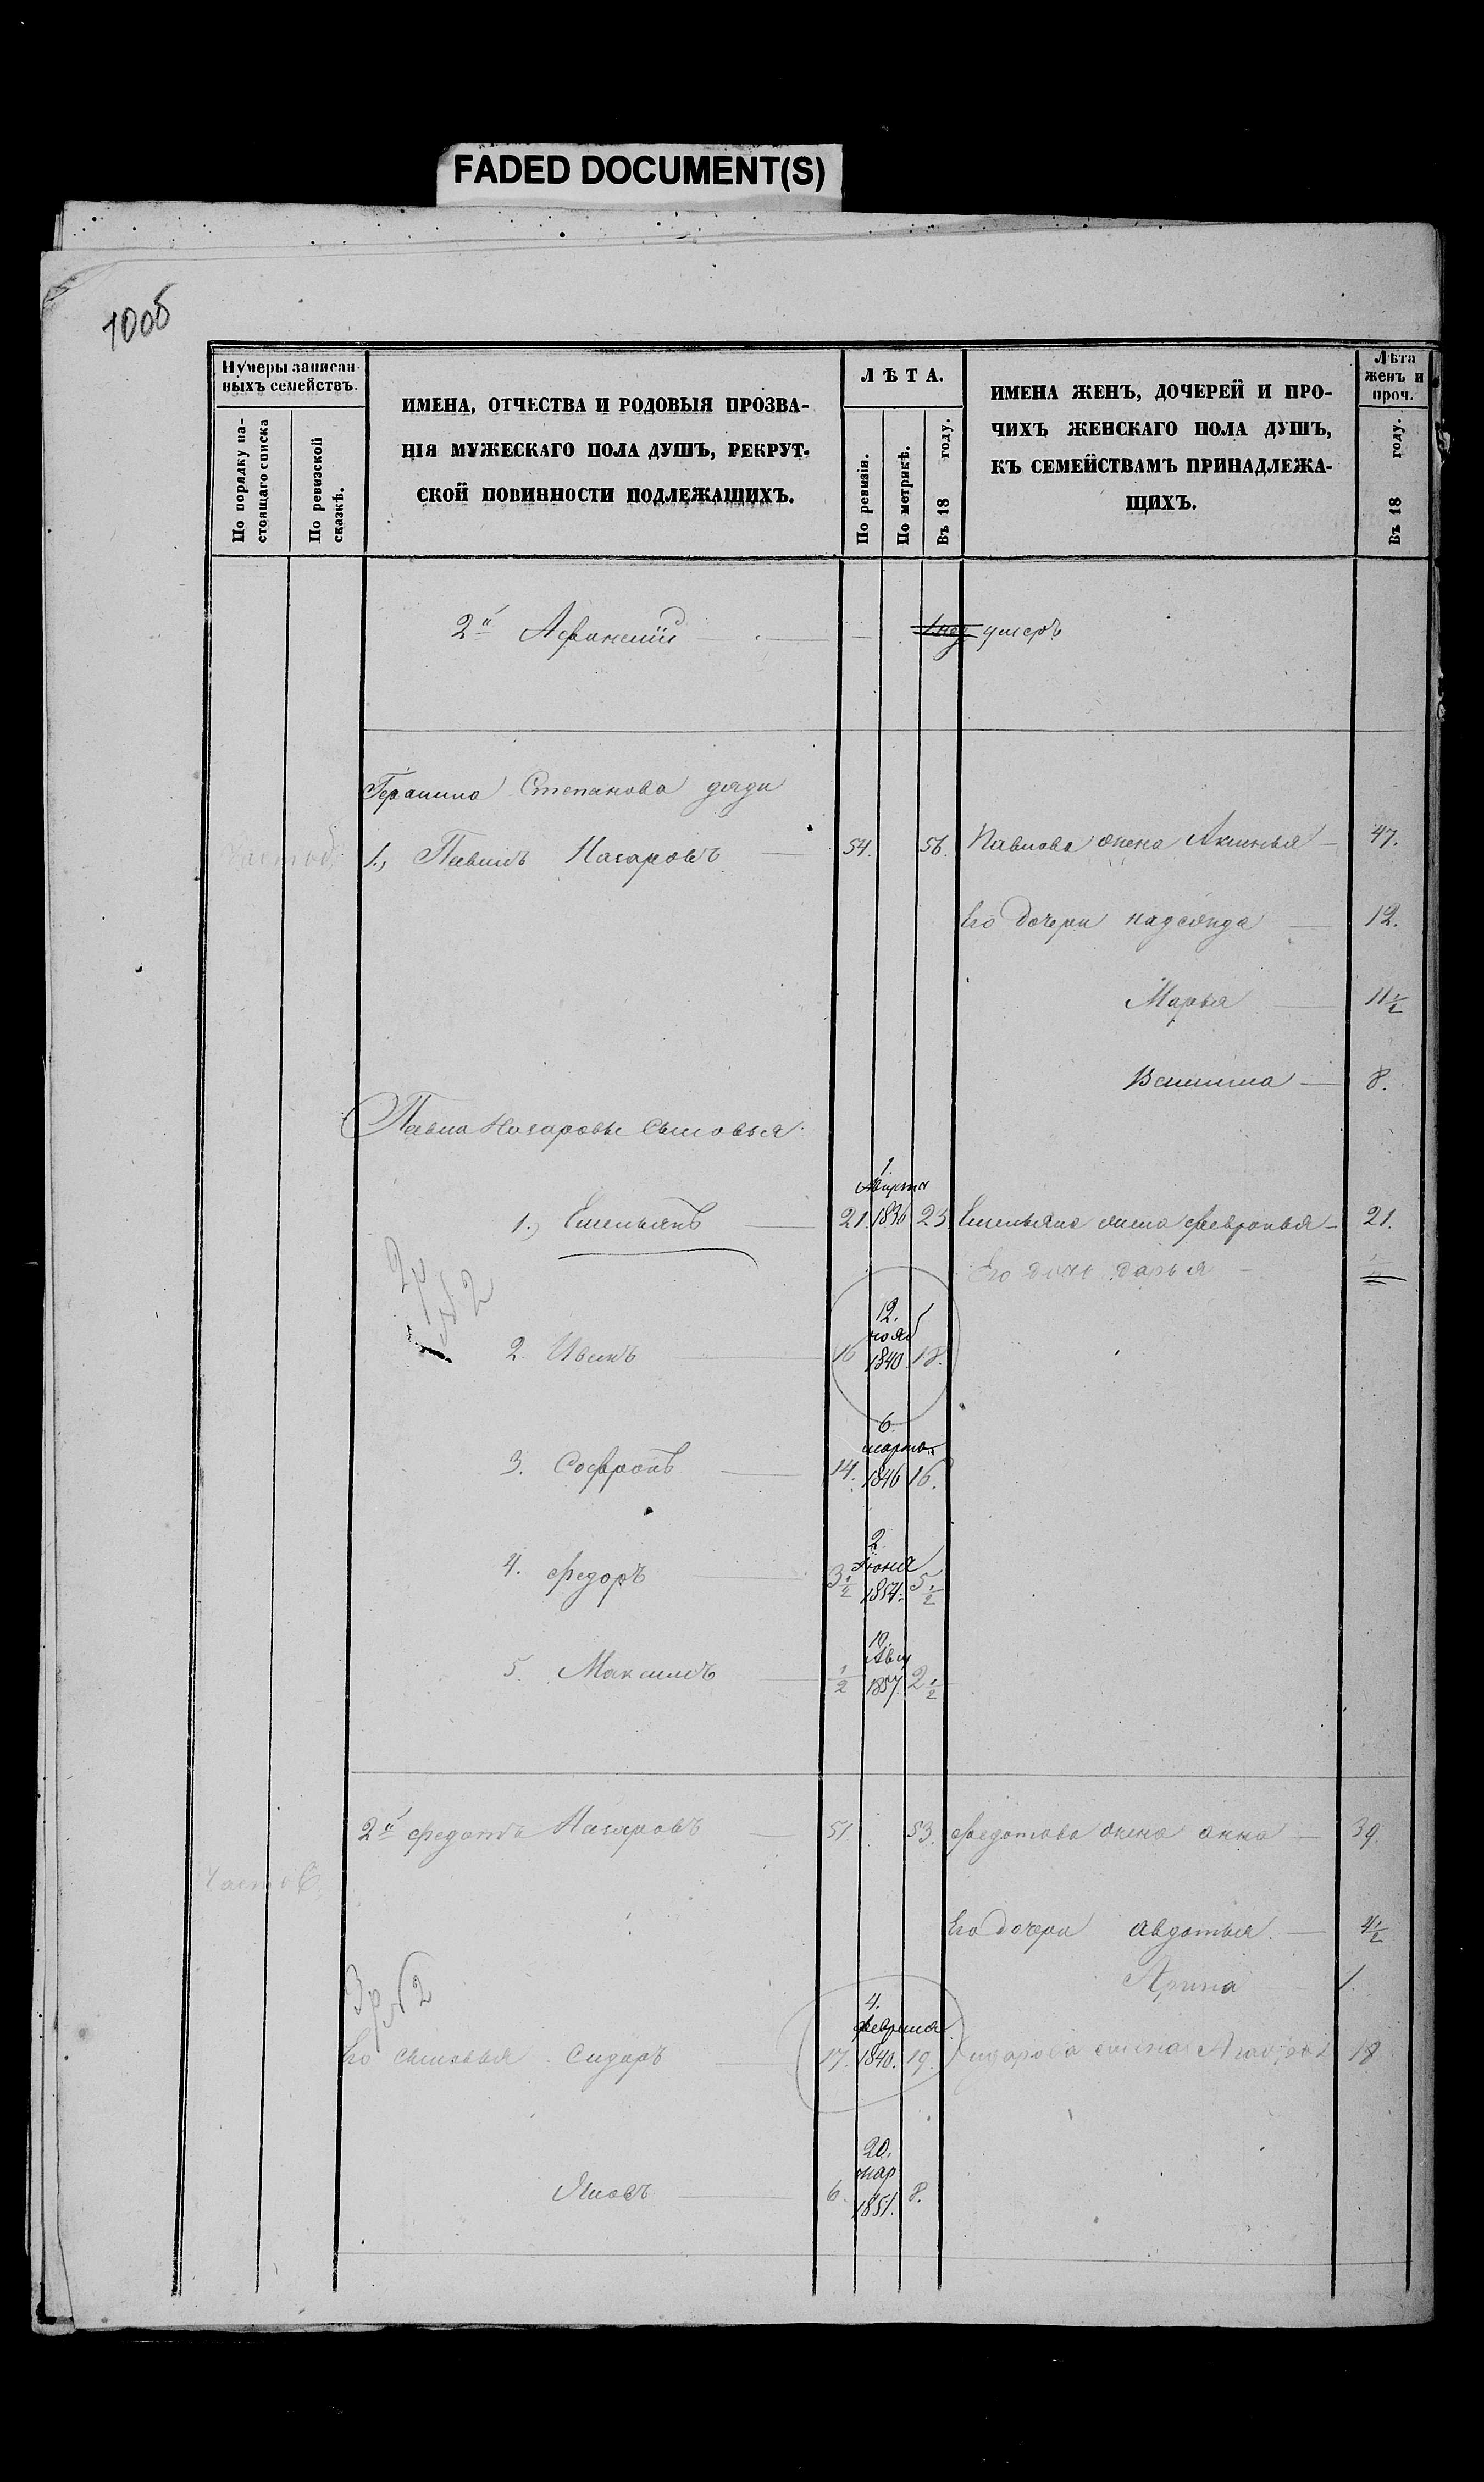 FADED DOCUMENT(S)
100б
Нумеры записан-
ныхъ семействъ.
По порядку на-
стоящаго списка
По ревизской
сказкѣ.
ИМЕНА, ОТЧЕСТВА И РОДОВЫЯ ПРОЗВА-
НІЯ МУЖЕСКАГО ПОЛА ДУШЪ, РЕКРУТ-
СКОЙ ПОВИННОСТИ ПОДЛЕЖАЩИХЪ.
ЛѢТА.
По ревизіи.
По метрикѣ.
Въ 18 году.
ИМЕНА ЖЕНЪ, ДОЧЕРЕЙ И ПРО-
ЧИХЪ ЖЕНСКАГО ПОЛА ДУШЪ,
КЪ СЕМЕЙСТВАМЪ ПРИНАДЛЕЖА-
ЩИХЪ.
Лѣта
женъ и
проч.
Въ 18 году.
2й Афанасий умеръ
Степанова дяди
1., Павилъ Назаровъ 54. 56. Павлова жена Аксинья 47.
Его дочери надежда 12.
Марья 11 1/2
Василиса 8.
Павла Назарова сыновья
1
Марта
1., Емельянъ 21. 1836 23 Емельяна жена февронья 21.
Его дочь дарья
2р №2
12.
нояб
2. Иванъ 16 1840 18.
6
марта
3. Софронъ 14. 1846 16.
2
Июня
4. федоръ 3 1/2 1854. 5 1/2
10.
Авг
5. Максимъ 1/2 1857. 2 1/2
2й федотъ Назаровъ 51. 53. федотова жена анна 39.
Его дочери авдотья 4 1/2
Арина 1.
3р №2
4.
февраля
Его сыновья Сидоръ 17. 1840. 19. Сидорова жена 18
20.
мар
Яковъ 6. 1851. 8.